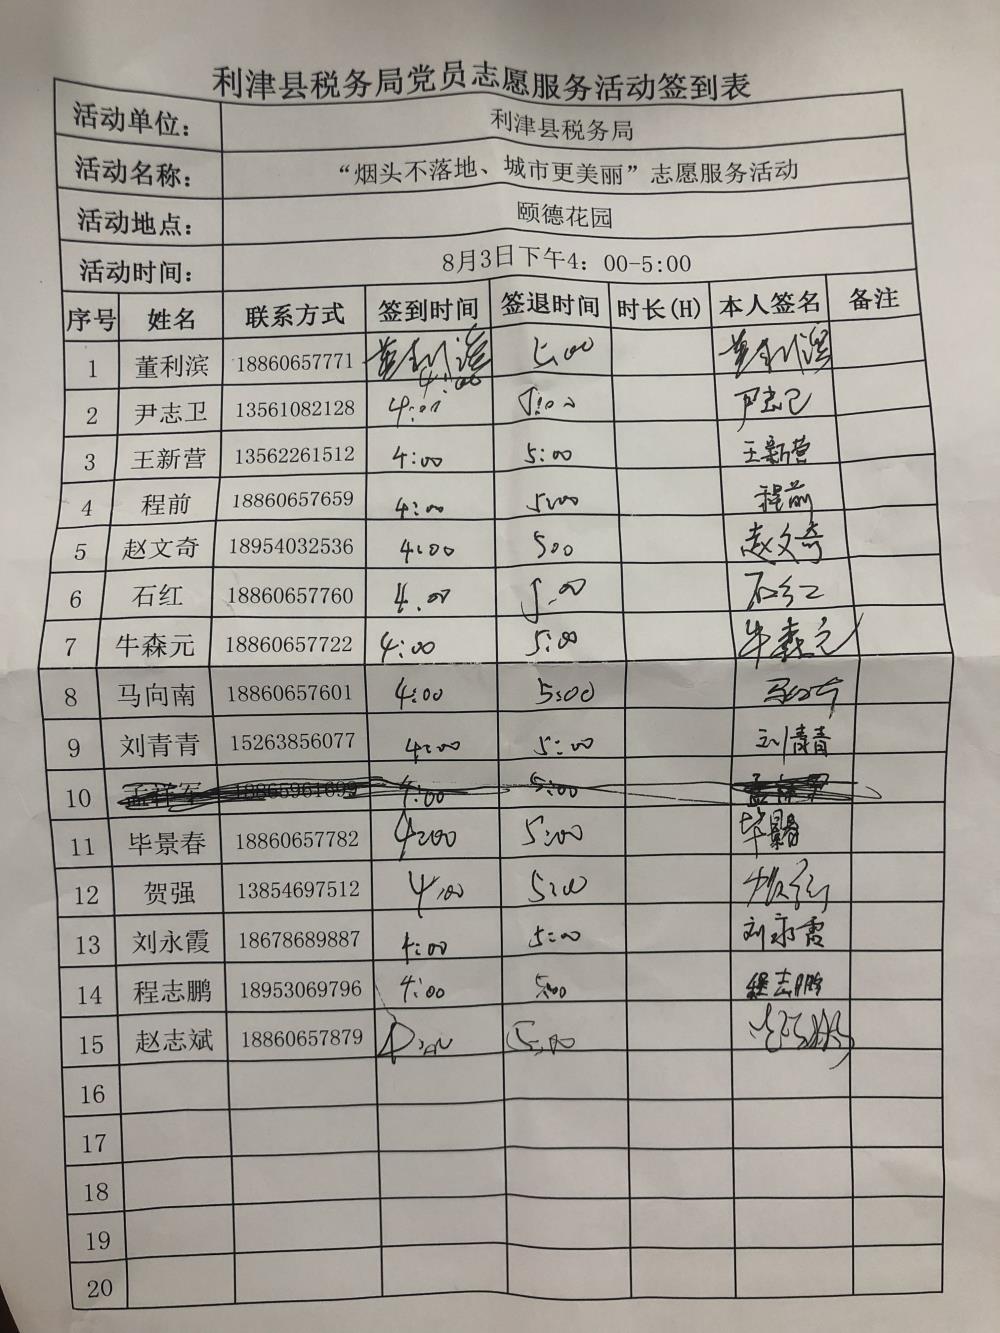 利津县税务局党员志愿服务活动签到表
活动单位： 利津县税务局
活动名称： “烟头不落地、城市更美丽”志愿服务活动
活动地点： 颐德花园
活动时间： 8月3日下午4：00-5:00
序号 姓名 联系方式 签到时间 签退时间 时长(H) 本人签名 备注
1 董利滨 18860657771 董利滨 4:00 5:00 董利滨
2 尹志卫 13561082128 4:00 5:00 尹志卫
3 王新营 13562261512 4:00 5:00 王新营
4 程前 18860657659 4:00 5:00 程前
5 赵文奇 18954032536 4:00 500 赵文奇
6 石红 18860657760 4:00 5:00 石红
7 牛森元 18860657722 4:00 5:00 牛森元
8 马向南 18860657601 4:00 5:00 马向南
9 刘青青 15263856077 4:00 5:00 刘青青
10 4:00 5:00
11 毕景春 18860657782 4:00 5:00 毕景春
12 贺强 13854697512 4:00 5:00 贺强
13 刘永霞 18678689887 4:00 5:00 刘永霞
14 程志鹏 18953069796 4:00 5:00 程志鹏
15 赵志斌 18860657879 4:00 5:00
16
17
18
19
20